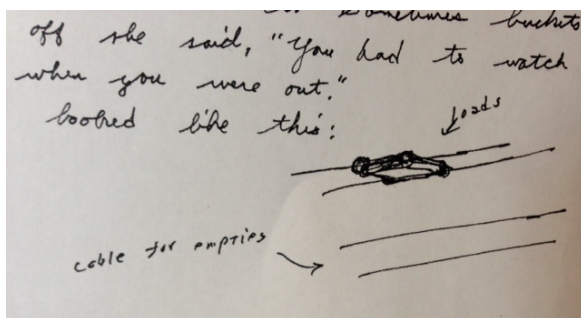 sometimes buckets
off she said, "You had to watch
when you were out."
looked like this:
Loads
cable for empties